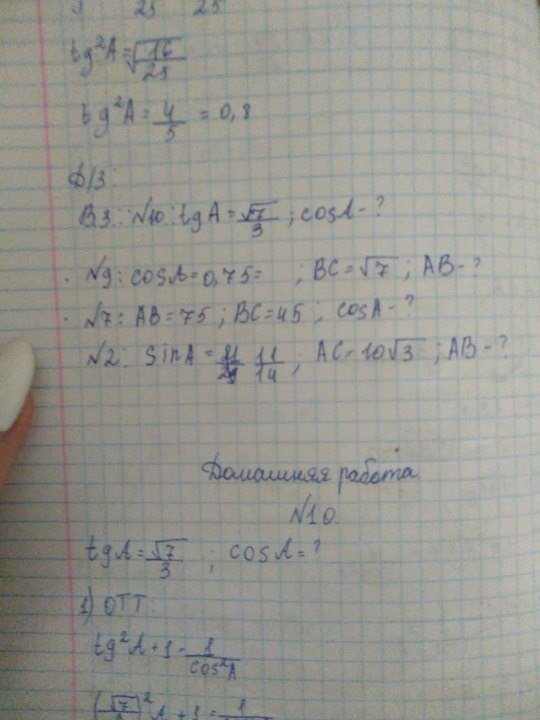 25 25
tg²A = √16/25
tg²A = 4/5 = 0,8
Д/З:
В3: №10: tgA = √7/3 ; cosA - ?
№9: cosA = 0,75 = ; BC = √7 ; AB - ?
№7: AB = 75 ; BC = 45 ; cosA - ?
№2: sinA = 11/14 ; AC = 10√3 ; AB - ?
Домашняя работа.
№10
tgA = √7/3 ; cosA = ?
1) ОТТ
tg²A + 1 = 1/cos²A